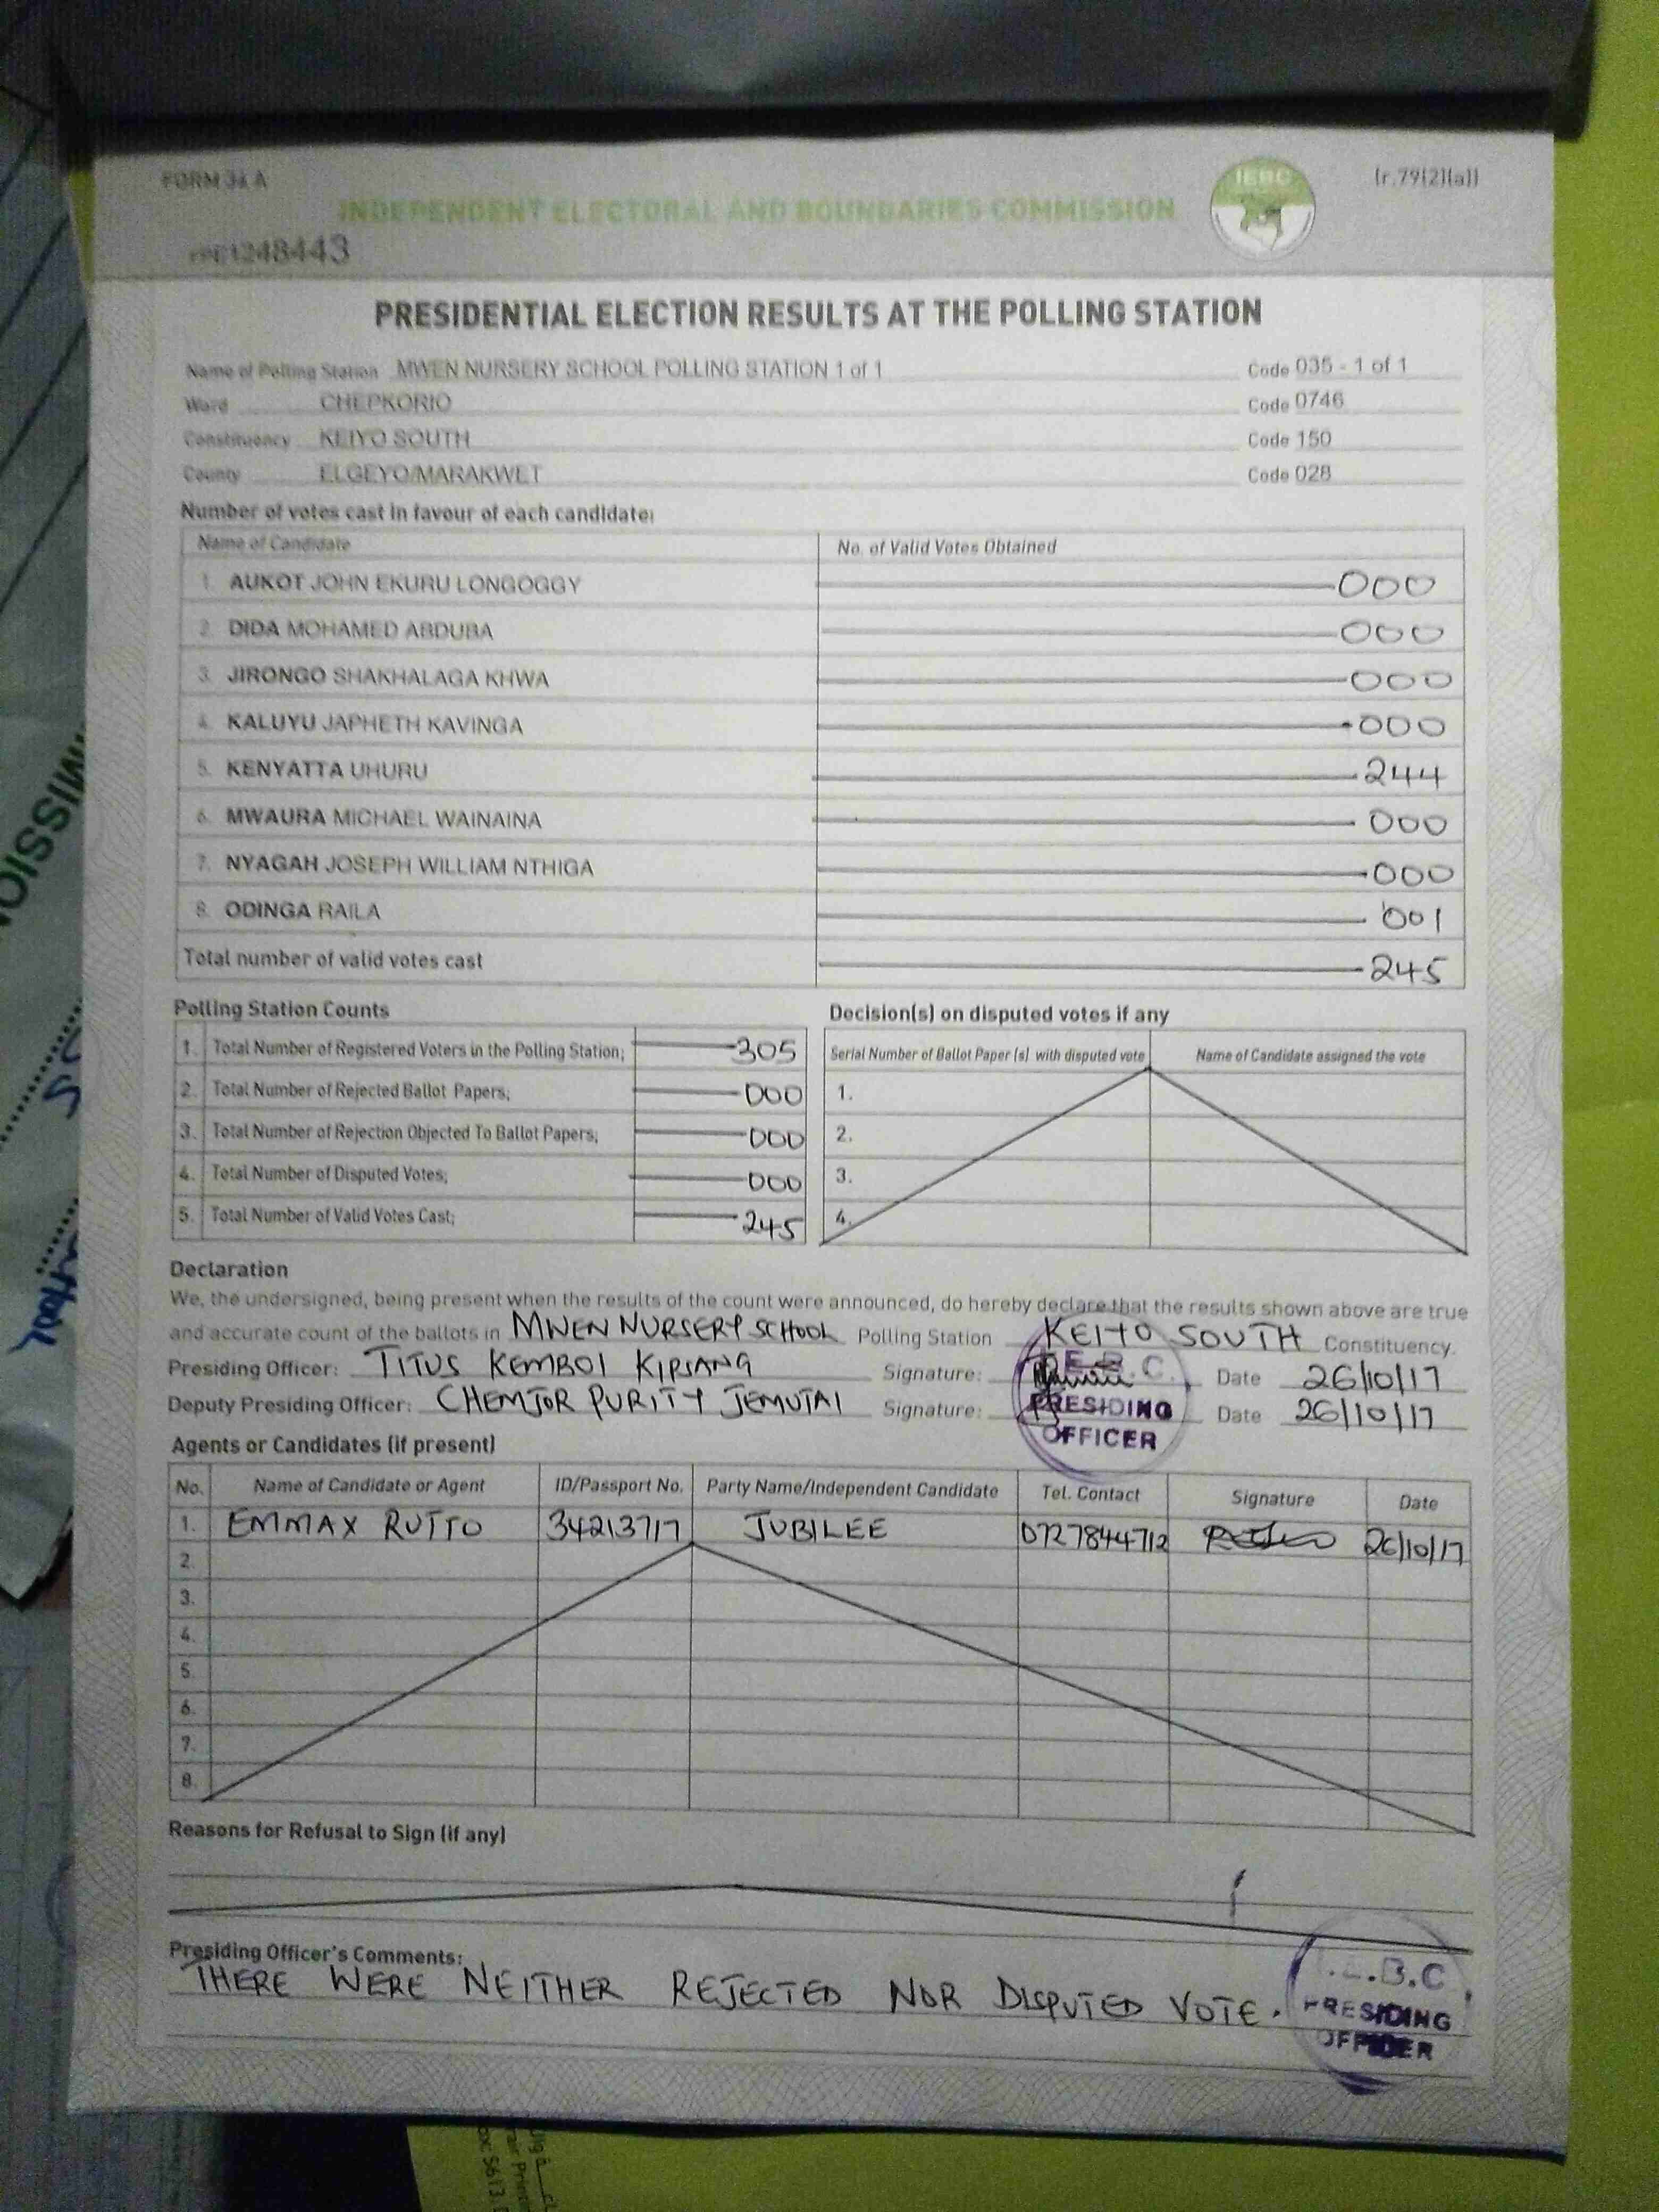 FORM 34 A
(r.79(2)(a))
IEBC
INDEPENDENT ELECTORAL AND BOUNDARIES COMMISSION
1248443
PRESIDENTIAL ELECTION RESULTS AT THE POLLING STATION
Name of Polling Station MWEN NURSERY SCHOOL POLLING STATION 1 of 1 Code 035 - 1 of 1
Ward CHEPKORIO Code 0746
Constituency KEIYO SOUTH Code 150
County ELGEYO/MARAKWET Code 028
Number of votes cast in favour of each candidate:
Name of Candidate No. of Valid Votes Obtained
1. AUKOT JOHN EKURU LONGOGGY 000
2. DIDA MOHAMED ABDUBA 000
3. JIRONGO SHAKHALAGA KHWA 000
4. KALUYU JAPHETH KAVINGA 000
5. KENYATTA UHURU 244
6. MWAURA MICHAEL WAINAINA 000
7. NYAGAH JOSEPH WILLIAM NTHIGA 000
8. ODINGA RAILA 001
Total number of valid votes cast 245
Polling Station Counts
1. Total Number of Registered Voters in the Polling Station; 305
2. Total Number of Rejected Ballot Papers; 000
3. Total Number of Rejection Objected To Ballot Papers; 000
4. Total Number of Disputed Votes; 000
5. Total Number of Valid Votes Cast; 245
Decision(s) on disputed votes if any
Serial Number of Ballot Paper (s) with disputed vote Name of Candidate assigned the vote
1.
2.
3.
4.
Declaration
We, the undersigned, being present when the results of the count were announced, do hereby declare that the results shown above are true
and accurate count of the ballots in MWEN NURSERY SCHOOL Polling Station KEIYO SOUTH Constituency.
Presiding Officer: TITUS KEMBOI KIPSANG Signature: Date 26/10/17
Deputy Presiding Officer: CHEMJOR PURITY JEMUTAI Signature: Date 26/10/17
I.E.B.C.
PRESIDING
OFFICER
Agents or Candidates (if present)
No. Name of Candidate or Agent ID/Passport No. Party Name/Independent Candidate Tel. Contact Signature Date
1. EMMAX RUTTO 34213717 JUBILEE 0727844712 26/10/17
2.
3.
4.
5.
6.
7.
8.
Reasons for Refusal to Sign (if any)
Presiding Officer's Comments:
THERE WERE NEITHER REJECTED NOR DISPUTED VOTE.
I.E.B.C
PRESIDING
OFFICER